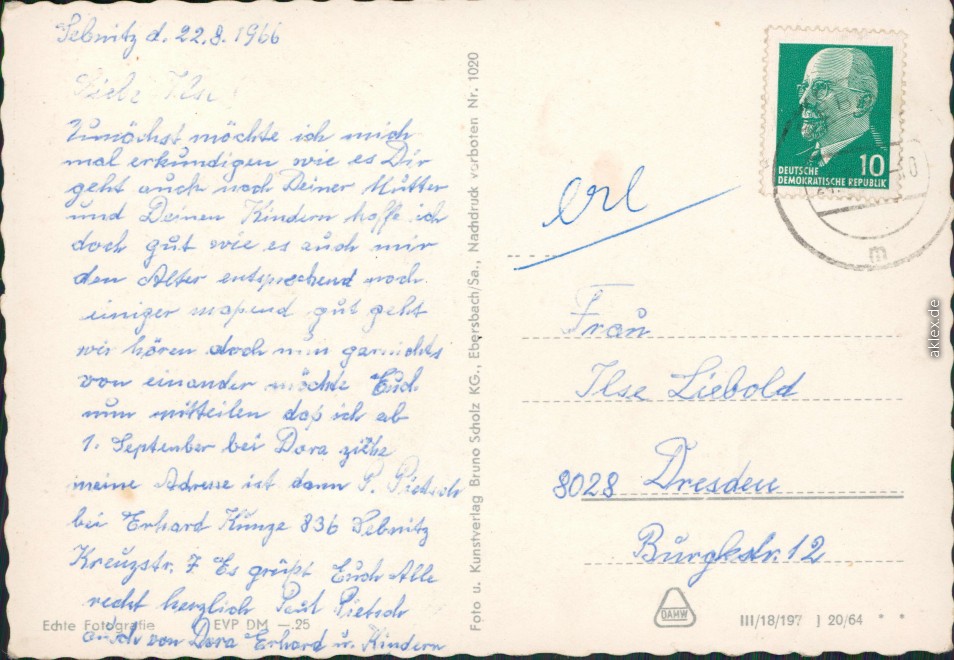 Sebnitz d. 22.8.1966
Liebe Ilse!
Zunächst möchte ich mich
mal erkundigen wie es Dir
geht auch noch Deiner Mutter
und Deinen Kindern hoffe ich
doch gut wie es auch mir
den Alter entsprechend noch
einiger maßend gut geht
wir hören doch nun garnichts
von einander möchte Euch
nun mitteilen daß ich ab
1. September bei Dora ziehe
meine Adresse ist dann P. Pietsch
bei Erhard Kunze 836 Sebnitz
Kreuzstr. 7 Es grüßt Euch Alle
recht herzlich Paul Pietsch
auch von Dora Erhard u. Kindern
Echte Fotografie EVP DM —.25
Foto u. Kunstverlag Bruno Scholz KG., Ebersbach/Sa., Nachdruck verboten Nr. 1020
DEUTSCHE
DEMOKRATISCHE REPUBLIK 10
m
erl
Frau
Ilse Liebold
8028 Dresden
Burgkstr. 12
DAMW
III/18/197 J 20/64 * *
aklex.de